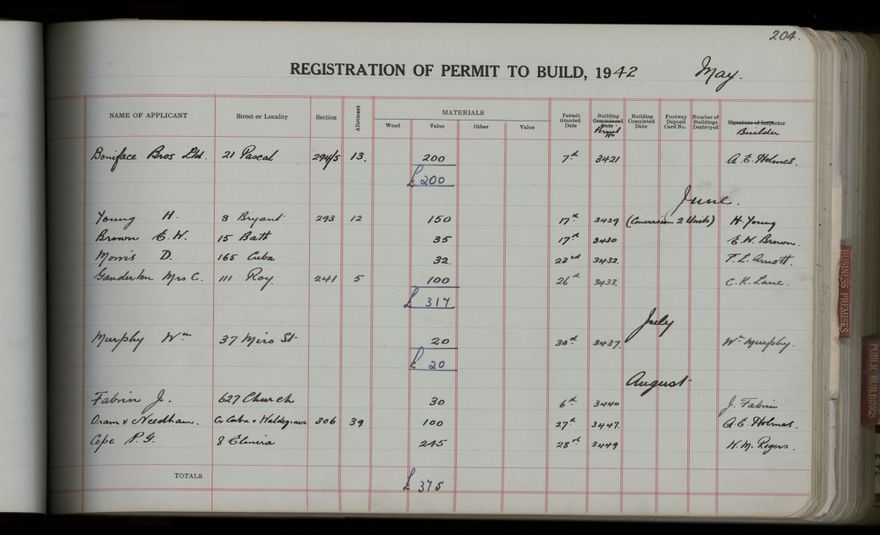 204.
REGISTRATION OF PERMIT TO BUILD, 1942 May.
NAME OF APPLICANT Street or Locality Section Allotment MATERIALS Wood Value Other Value Permit Granted Date Building Commenced Date Permit No Building Completed Date Footway Deposit Card No. Number of Buildings Destroyed Signature of Inspector Builder
Boniface Bros Ltd. 21 Pascal 294/5 13. 200 7th 3421 A. E. Holmes.
£ 200
June.
Young H. 8 Bryant 293 12 150 17th 3429 (Conversion 2 Units) H. Young
Brown E. W. 15 Bath 35 17th 3430 E. W. Brown.
Morris D. 165 Cuba 32. 23rd 3432. T. L. Arnott.
Ganderton Mrs C. 111 Roy 241 5 100 26th 3433. C. K. Lane.
£ 317
July
Murphy Wm 37 Miro St 20 30th 3437. Wm Murphy.
£ 20
August
Fabrin J. 627 Church 30 6th 3440 J. Fabrin
Oram & Needham. Cr Cuba & Waldegrave 306 39 100 27th 3447. A. E. Holmes.
Cope P. G. 8 Elmira 245 28th 3449 W. M. Rigers.
TOTALS £ 375
BUSINESS PREMISES
PUBLIC BUILDINGS